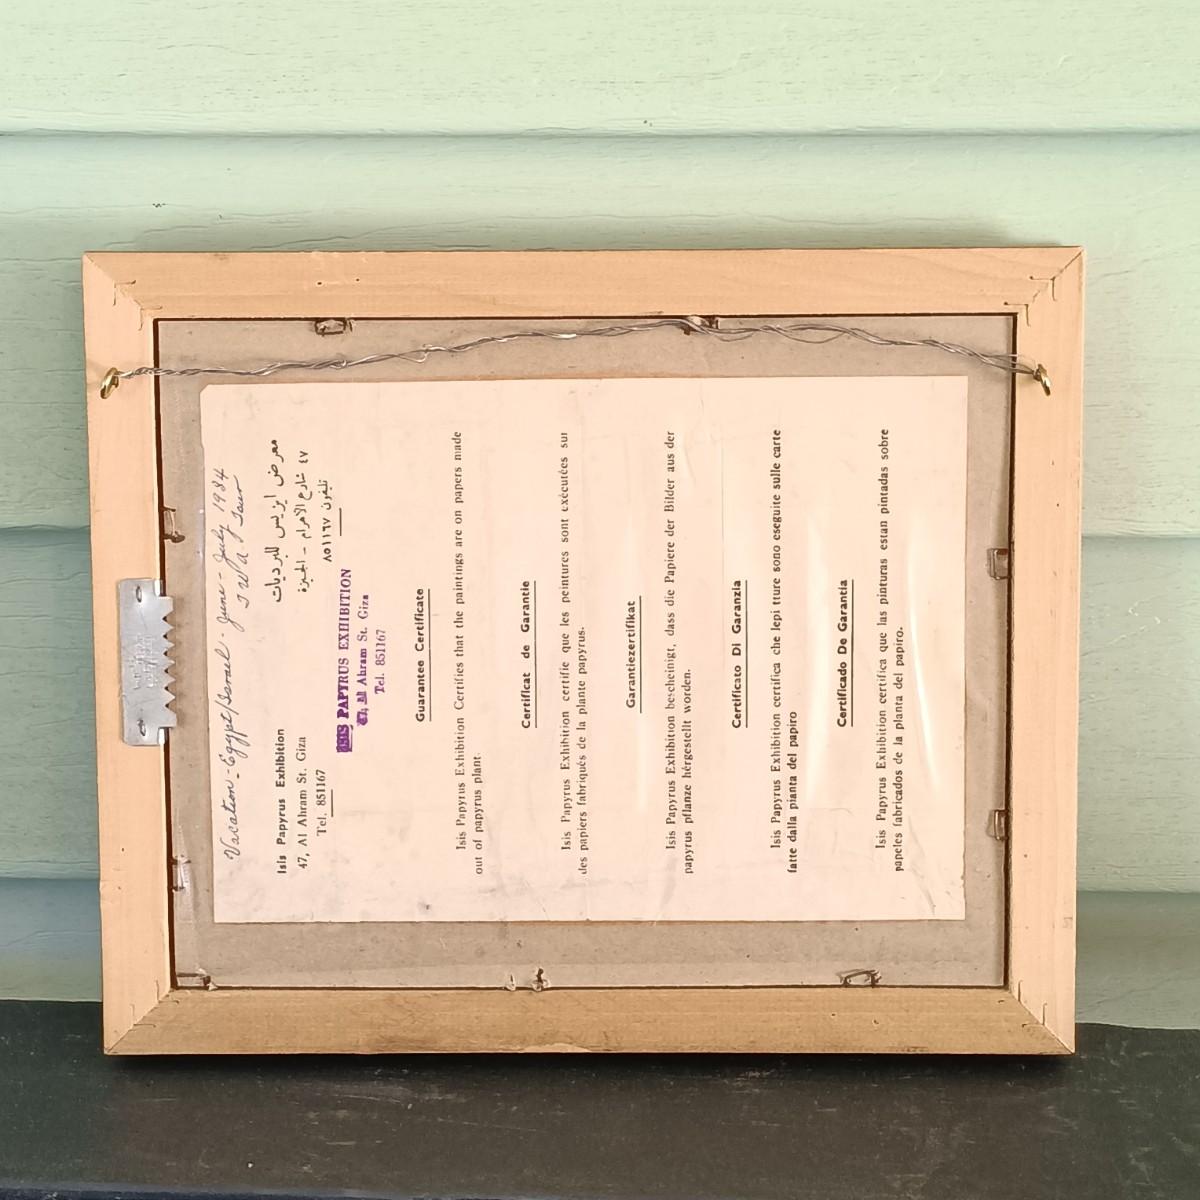 Vacation - Egypt/Israel - June - July 1984
TWA Tour
Isis Papyrus Exhibition
47, Al Ahram St. Giza
Tel. 851167
معرض ايزيس للبرديات
٤٧ شارع الاهرام - الجيزة
تليفون ٨٥١١٦٧
ISIS PAPYRUS EXHIBITION
47, Al Ahram St. Giza
Tel. 851167
Guarantee Certificate
Isis Papyrus Exhibition Certifies that the paintings are on papers made
out of papyrus plant.
Certificat de Garantie
Isis Papyrus Exhibition certifie que les peintures sont exécutées sur
des papiers fabriqués de la plante papyrus.
Garantiezertifikat
Isis Papyrus Exhibition bescheinigt, dass die Papiere der Bilder aus der
papyrus pflanze hérgestellt worden.
Certificato Di Garanzia
Isis Papyrus Exhibition certifica che lepi tture sono eseguite sulle carte
fatte dalla pianta del papiro
Certificado De Garantia
Isis Papyrus Exhibition certifica que las pinturas estan pintadas sobre
papeles fabricados de la planta del papiro.